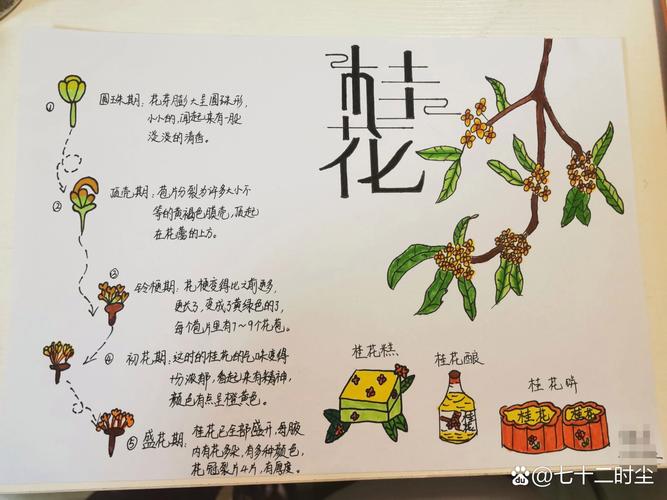 桂花
① 圆珠期：花芽膨大呈圆珠形，
小小的，闻起来有一股
淡淡的清香。
② 顶壳期：苞片分裂为许多大小不
等的黄褐色膜壳，顶起
在花蕾的上方。
③ 铃梗期：花梗变得比之前更多，
更长了，变成了黄绿色的了，
每个苞片里有7～9个花苞。
④ 初花期：这时的桂花的气味变得
十分浓郁，看起来有精神，
颜色有点呈橙黄色。
⑤ 盛花期：桂花已全部盛开，每腋
内有花多朵，有多种颜色，
花冠裂片4片，有厚度。
桂花糕
桂花酿
桂花
桂花
桂花
@七十二时尘